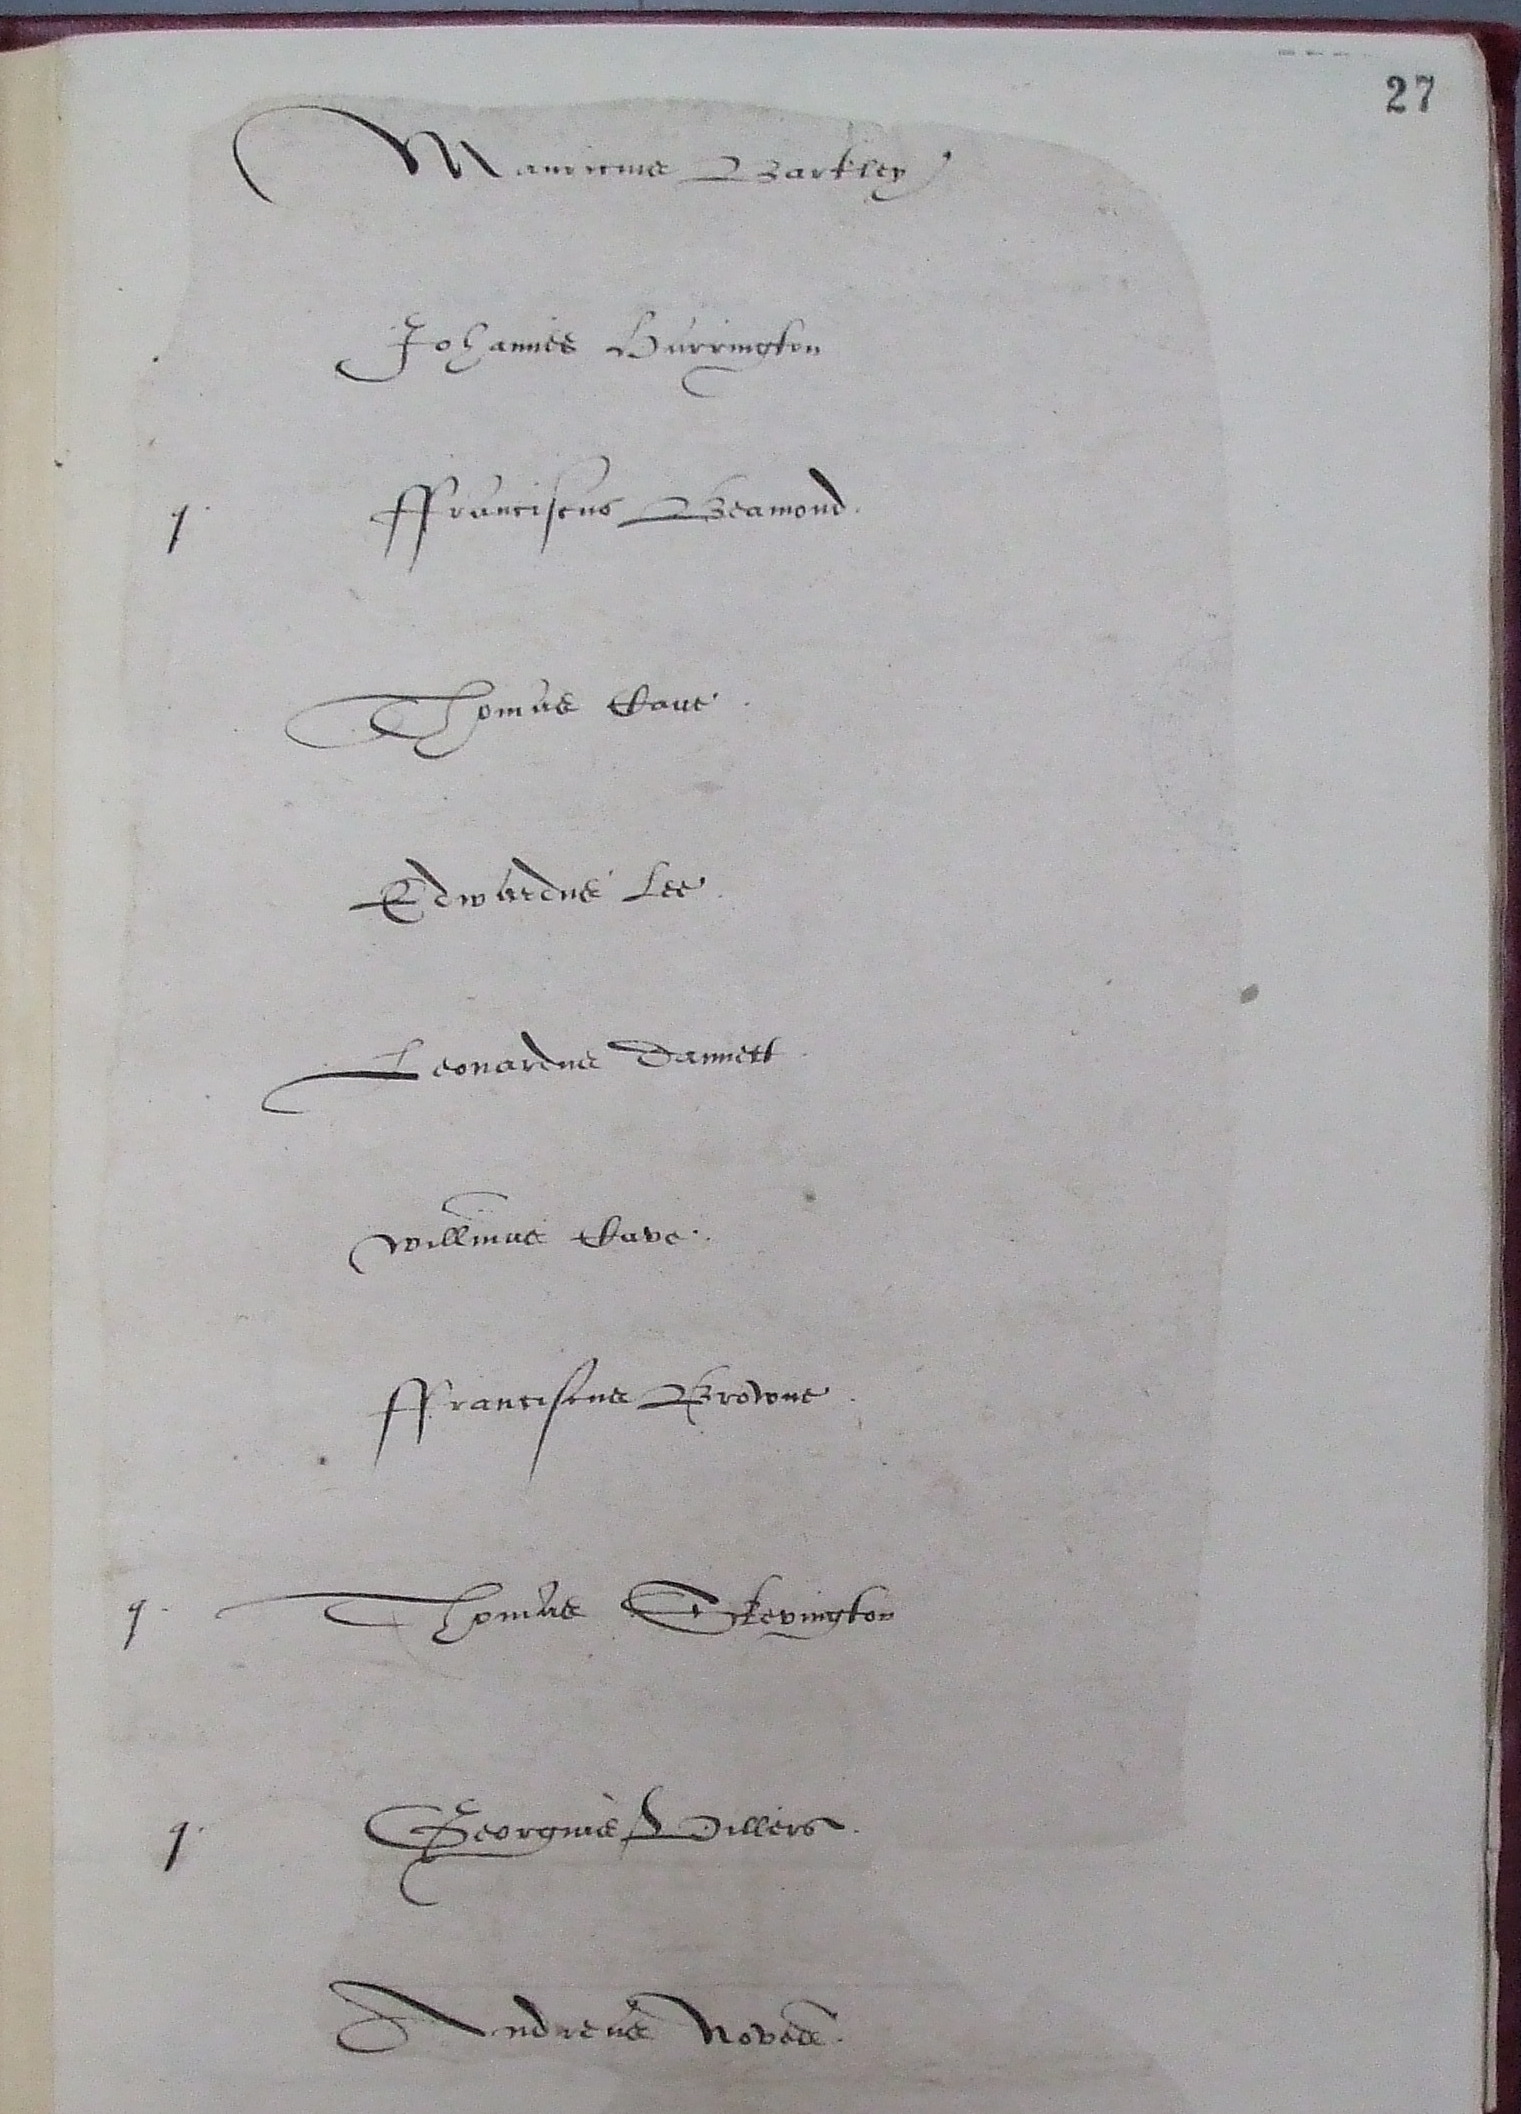 27
Mauricius Barkley
Johannes Hurrington
q. ffranciscus Beamond.
Thomas Caue.
Edwardus Lee.
Leonardus Dannett.
Willmus Cave.
ffranciscus Browne.
q. Thomas Skevington
q. Georgius Villers.
Andreas